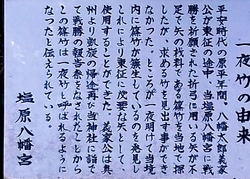 一夜竹の由来
平安時代の康平年間、八幡太郎義家
公が東征の途中、当塩原八幡宮に戦
勝を祈願された折弓に用いる矢が不
足で矢の材料である篠竹を当地で探
したが、求める竹を見出す事ができ
なかった。ところが一夜明けて当境
内に篠竹が簇生しているのを発見し
これにより東征に必要な矢として
使用することができた。義家公は奥
州より凱旋の帰途再び当神社に詣で
て戦勝の報告祭をなされたことから
この篠竹は一夜竹と呼ばれるように
なったと伝えられている。
塩原八幡宮